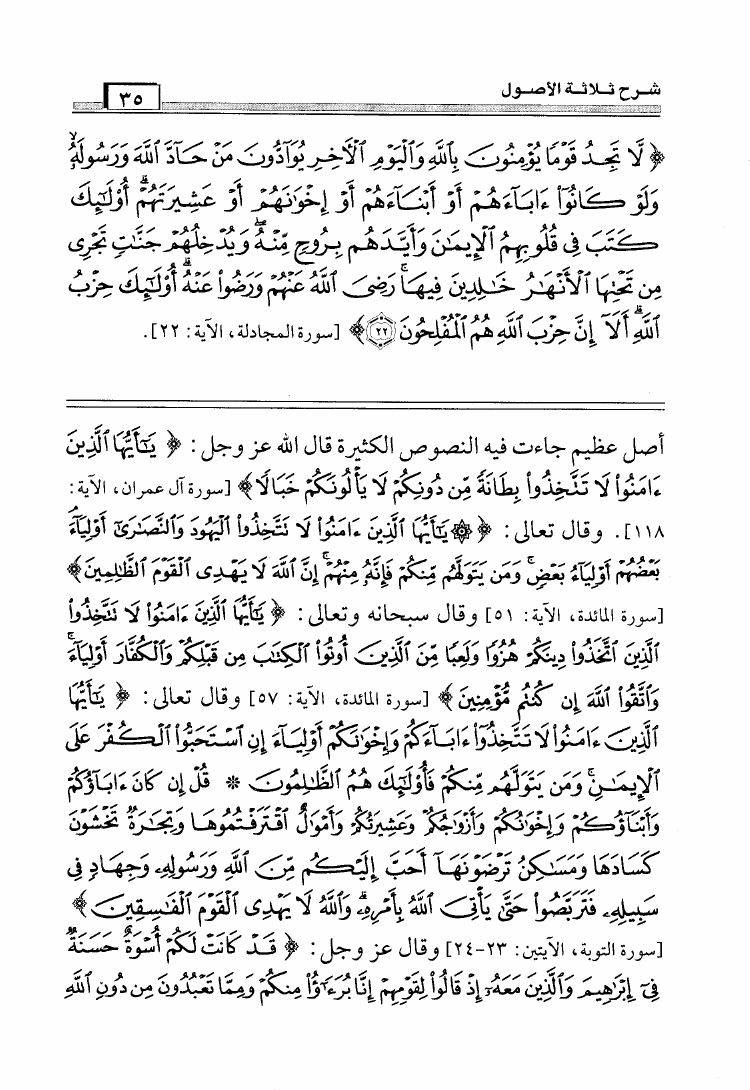 شرح ثلاثة الأصول
٣٥
﴿ لَّا تَجِدُ قَوْمًا يُؤْمِنُونَ بِٱللَّهِ وَٱلْيَوْمِ ٱلْءَاخِرِ يُوَآدُّونَ مَنْ حَآدَّ ٱللَّهَ وَرَسُولَهُۥ
وَلَوْ كَانُوٓا۟ ءَابَآءَهُمْ أَوْ أَبْنَآءَهُمْ أَوْ إِخْوَٰنَهُمْ أَوْ عَشِيرَتَهُمْ ۚ أُو۟لَٰٓئِكَ
كَتَبَ فِى قُلُوبِهِمُ ٱلْإِيمَٰنَ وَأَيَّدَهُم بِرُوحٍ مِّنْهُ ۖ وَيُدْخِلُهُمْ جَنَّٰتٍ تَجْرِى
مِن تَحْتِهَا ٱلْأَنْهَٰرُ خَٰلِدِينَ فِيهَا ۚ رَضِىَ ٱللَّهُ عَنْهُمْ وَرَضُوا۟ عَنْهُ ۚ أُو۟لَٰٓئِكَ حِزْبُ
ٱللَّهِ ۚ أَلَآ إِنَّ حِزْبَ ٱللَّهِ هُمُ ٱلْمُفْلِحُونَ ٢٢﴾ [سورة المجادلة، الآية: ٢٢].
أصل عظيم جاءت فيه النصوص الكثيرة قال الله عز وجل: ﴿ يَٰٓأَيُّهَا ٱلَّذِينَ
ءَامَنُوا۟ لَا تَتَّخِذُوا۟ بِطَانَةً مِّن دُونِكُمْ لَا يَأْلُونَكُمْ خَبَالًا﴾ [سورة آل عمران، الآية:
١١٨]. وقال تعالى: ﴿ ۞ يَٰٓأَيُّهَا ٱلَّذِينَ ءَامَنُوا۟ لَا تَتَّخِذُوا۟ ٱلْيَهُودَ وَٱلنَّصَٰرَىٰٓ أَوْلِيَآءَ
بَعْضُهُمْ أَوْلِيَآءُ بَعْضٍ ۚ وَمَن يَتَوَلَّهُم مِّنكُمْ فَإِنَّهُۥ مِنْهُمْ ۗ إِنَّ ٱللَّهَ لَا يَهْدِى ٱلْقَوْمَ ٱلظَّٰلِمِينَ ﴾
[سورة المائدة، الآية: ٥١] وقال سبحانه وتعالى: ﴿ يَٰٓأَيُّهَا ٱلَّذِينَ ءَامَنُوا۟ لَا تَتَّخِذُوا۟
ٱلَّذِينَ ٱتَّخَذُوا۟ دِينَكُمْ هُزُوًا وَلَعِبًا مِّنَ ٱلَّذِينَ أُوتُوا۟ ٱلْكِتَٰبَ مِن قَبْلِكُمْ وَٱلْكُفَّارَ أَوْلِيَآءَ ۚ
وَٱتَّقُوا۟ ٱللَّهَ إِن كُنتُم مُّؤْمِنِينَ ﴾ [سورة المائدة، الآية: ٥٧] وقال تعالى: ﴿ يَٰٓأَيُّهَا
ٱلَّذِينَ ءَامَنُوا۟ لَا تَتَّخِذُوٓا۟ ءَابَآءَكُمْ وَإِخْوَٰنَكُمْ أَوْلِيَآءَ إِنِ ٱسْتَحَبُّوا۟ ٱلْكُفْرَ عَلَى
ٱلْإِيمَٰنِ ۚ وَمَن يَتَوَلَّهُم مِّنكُمْ فَأُو۟لَٰٓئِكَ هُمُ ٱلظَّٰلِمُونَ * قُلْ إِن كَانَ ءَابَآؤُكُمْ
وَأَبْنَآؤُكُمْ وَإِخْوَٰنُكُمْ وَأَزْوَٰجُكُمْ وَعَشِيرَتُكُمْ وَأَمْوَٰلٌ ٱقْتَرَفْتُمُوهَا وَتِجَٰرَةٌ تَخْشَوْنَ
كَسَادَهَا وَمَسَٰكِنُ تَرْضَوْنَهَآ أَحَبَّ إِلَيْكُم مِّنَ ٱللَّهِ وَرَسُولِهِۦ وَجِهَادٍ فِى
سَبِيلِهِۦ فَتَرَبَّصُوا۟ حَتَّىٰ يَأْتِىَ ٱللَّهُ بِأَمْرِهِۦ ۗ وَٱللَّهُ لَا يَهْدِى ٱلْقَوْمَ ٱلْفَٰسِقِينَ ﴾
[سورة التوبة، الآيتين: ٢٣-٢٤] وقال عز وجل: ﴿ قَدْ كَانَتْ لَكُمْ أُسْوَةٌ حَسَنَةٌ
فِىٓ إِبْرَٰهِيمَ وَٱلَّذِينَ مَعَهُۥٓ إِذْ قَالُوا۟ لِقَوْمِهِمْ إِنَّا بُرَءَٰٓؤُا۟ مِنكُمْ وَمِمَّا تَعْبُدُونَ مِن دُونِ ٱللَّهِ